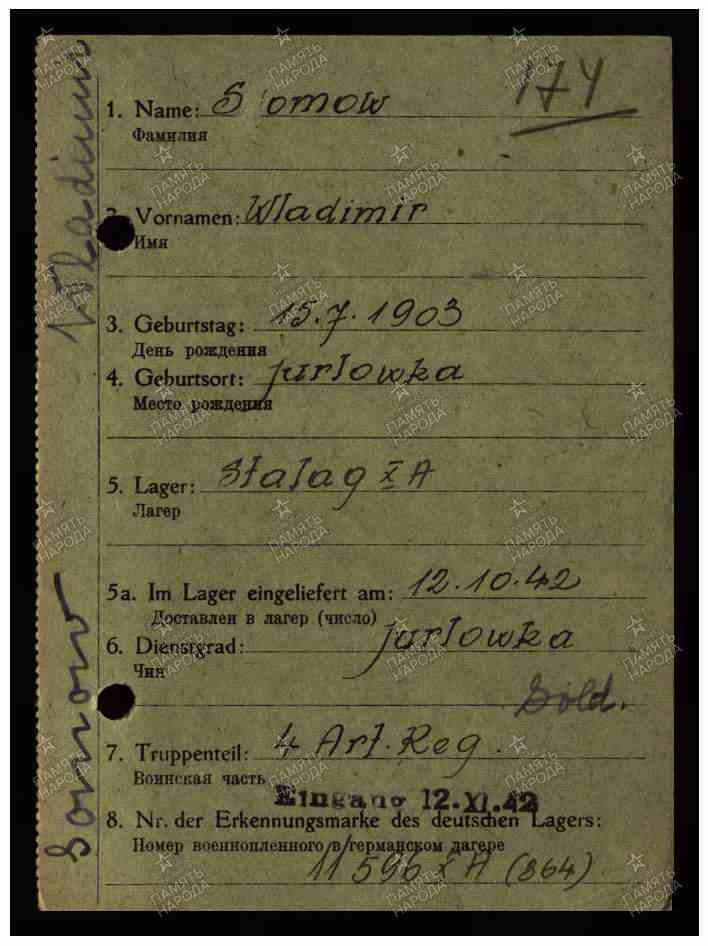 174
1. Name: Somow
Фамилия
2. Vornamen: Wladimir
Имя
3. Geburtstag: 15.7.1903
День рождения
4. Geburtsort: Jurlowka
Место рождения
5. Lager: Stalag X A
Лагер
5a. Im Lager eingeliefert am: 12.10.42
Доставлен в лагер (число)
6. Dienstgrad: Jurlowka
Чин
Sold.
7. Truppenteil: 4 Art. Reg.
Воинская часть
Eingang 12.XI.42
8. Nr. der Erkennungsmarke des deutschen Lagers:
Номер военнопленного в германском лагере
11596 X A (864)
Somow Wladimir
ПАМЯТЬ НАРОДА